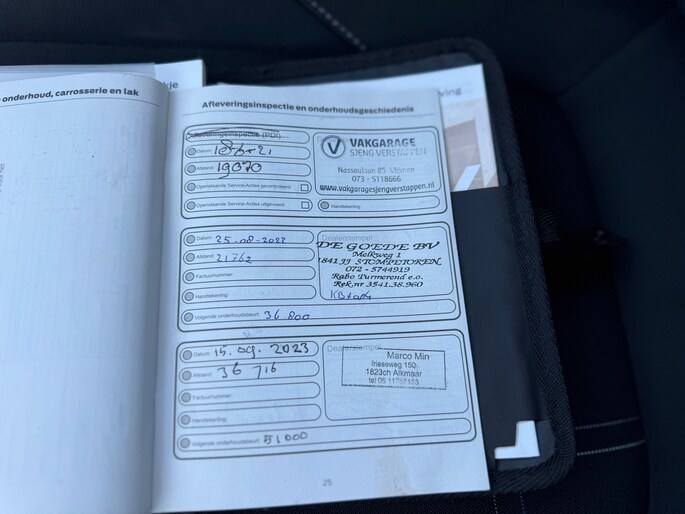 onderhoud, carrosserie en lak
kje
ving
Afleveringsinspectie en onderhoudsgeschiedenis
Afleveringsinspectie (PDI)
Datum:
Afstand: 19070
Openstaande Service-Acties gecontroleerd
Openstaande Service-Acties uitgevoerd
VAKGARAGE
SJENG VERSTAPPEN
Nassaulaan 85 Vlijmen
073 - 5118666
www.vakgaragesjengverstappen.nl
Handtekening:
Datum: 25-08-2022
Afstand: 21762
Factuurnummer:
Handtekening:
Volgende onderhoudsbeurt: 36.800
Dealerstempel
DE GOEDE BV
Melkweg 1
1841 JJ STOMPETOREN
072 - 5744919
Rabo Purmerend e.o.
Rek.nr 3541.38.960
Datum: 15. 09. 2023
Afstand: 36 716
Factuurnummer:
Handtekening:
Volgende onderhoudsbeurt: 51000
Dealerstempel
Marco Min
Irieseweg 150
1823ch Alkmaar
25